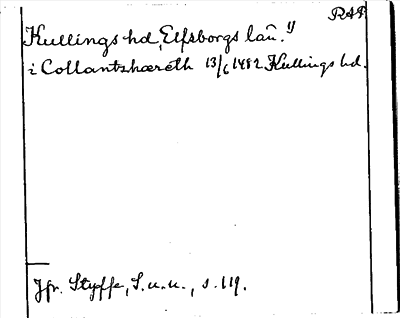 RAP
Kullings hd, Elfsborgs län.
i Collantzhæreth 13/6 1482 Kullings hd.
Jfr. Styffe, S.u.u., s. 119.